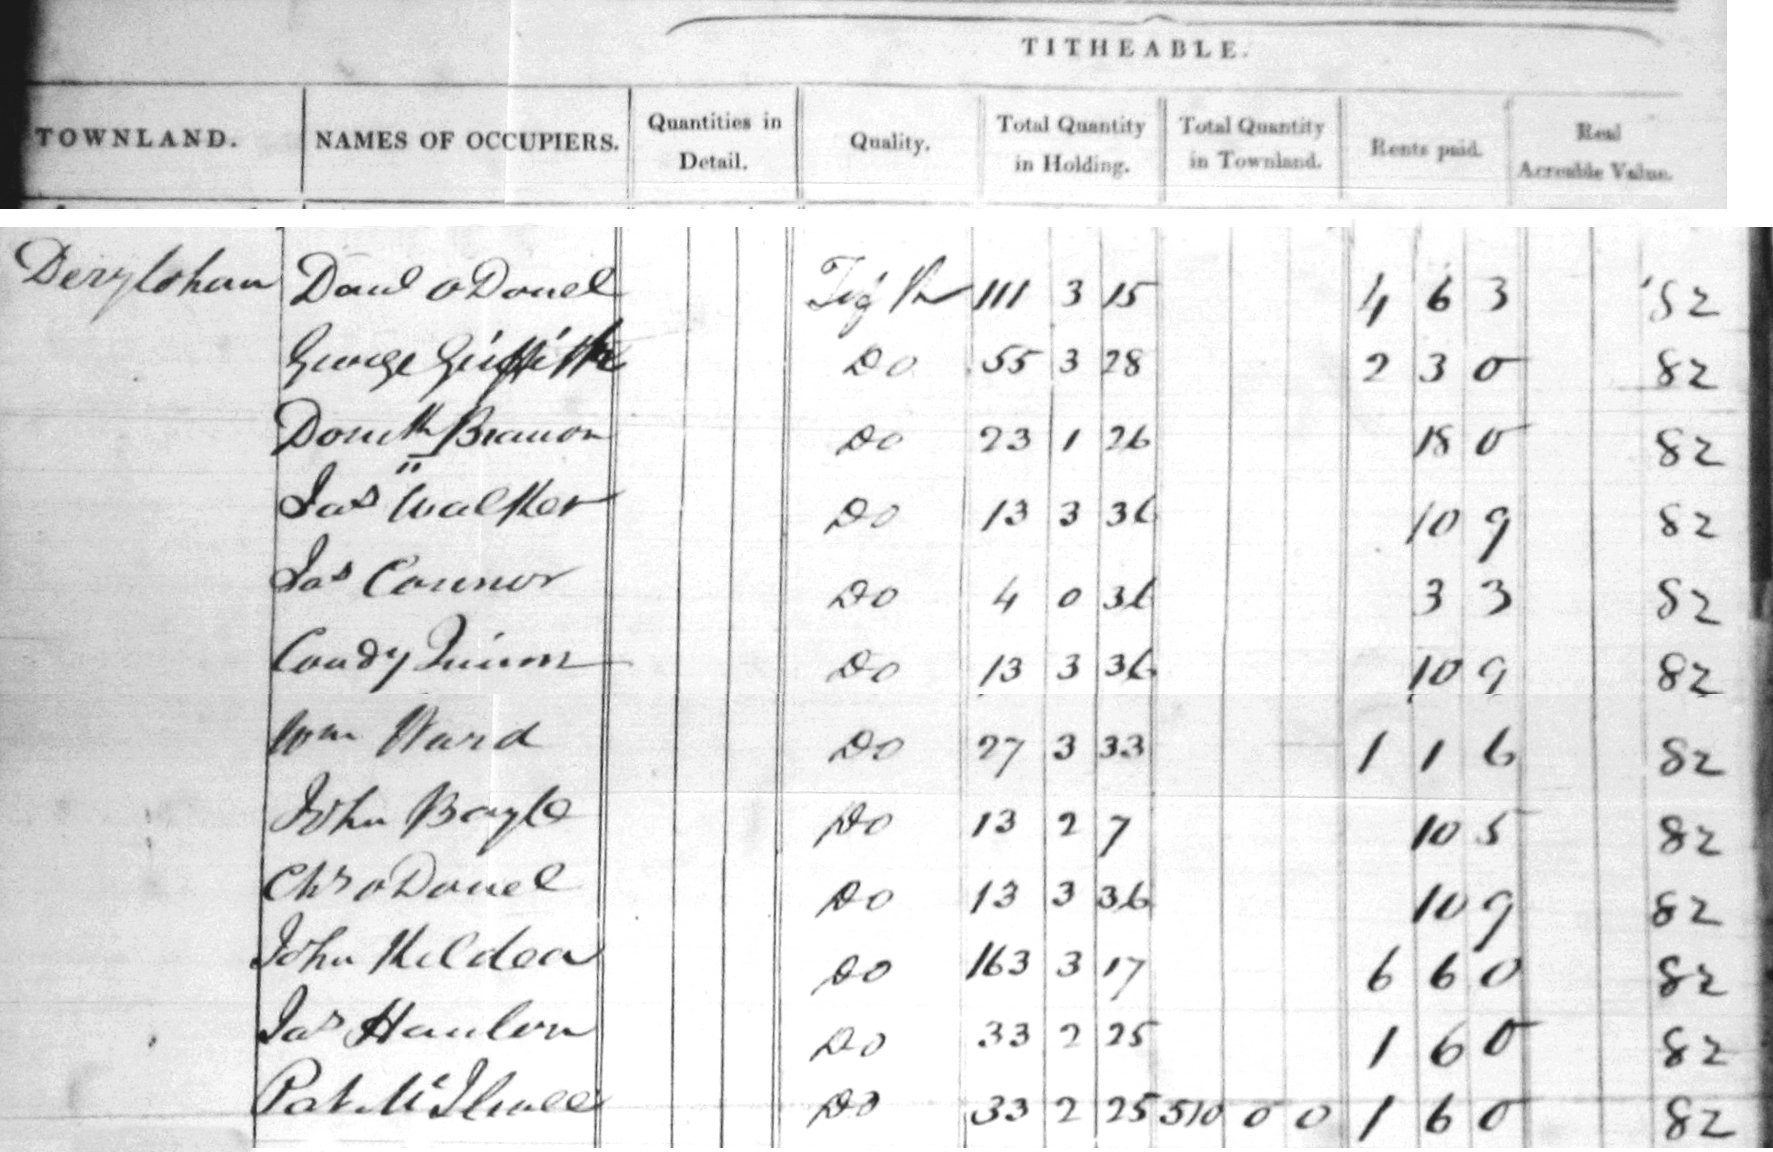 TITHEABLE.
TOWNLAND. NAMES OF OCCUPIERS. Quantities in Detail. Quality. Total Quantity in Holding. Total Quantity in Townland. Rents paid. Real Acreable Value.
Danl o Donel 111 3 15 4 6 3 82
George Griffith Do 55 3 28 2 3 0 82
Branon Do 23 1 26 18 0 82
Jas Walker Do 13 3 36 10 9 82
Jas Connor Do 4 0 36 3 3 82
Condy Do 13 3 36 10 9 82
Wm Ward Do 27 3 33 1 1 6 82
John Boyle Do 13 2 7 10 5 82
Chrs o Donel Do 13 3 36 10 9 82
John Kildea Do 163 3 17 6 6 0 82
Jas Hanlon Do 33 2 25 1 6 0 82
Pat Do 33 2 25 510 0 0 1 6 0 82